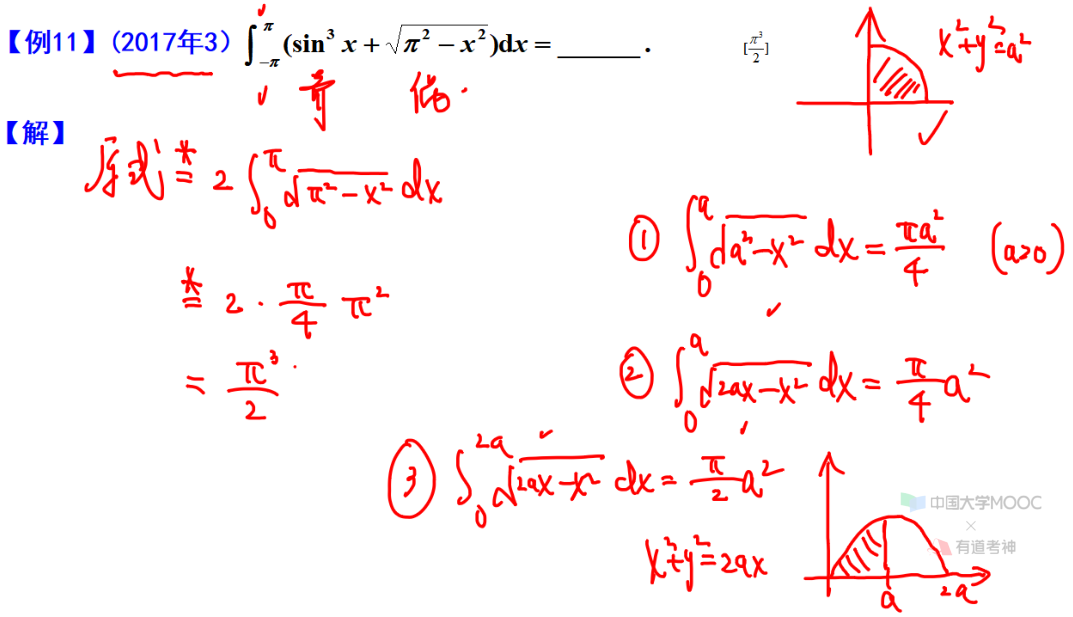 【例11】(2017年3) ∫_{-π}^{π} (sin³ x + √(π² − x²))dx = ______ . [π³/2]
奇 偶.
x²+y²=a²
【解】
原式 ≝* 2 ∫_0^π √(π²−x²) dx
=* 2 · π/4 π²
= π³/2 .
① ∫_0^a √(a²−x²) dx = πa²/4 (a>0)
② ∫_0^a √(2ax−x²) dx = π/4 a²
③ ∫_0^{2a} √(2ax−x²) dx = π/2 a²
x²+y²=2ax
a 2a
中国大学MOOC
×
有道考神